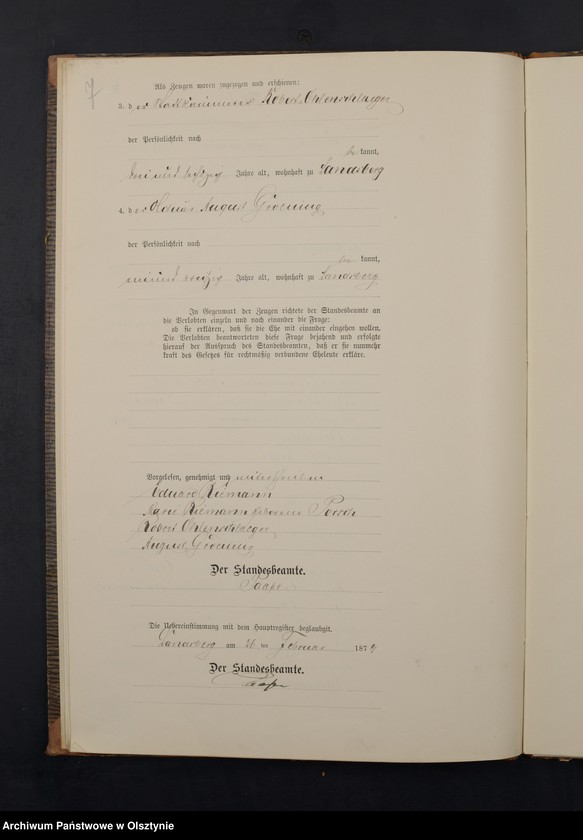 7
Als Zeugen waren zugezogen und erschienen:
3. der Robert Ohlenschlaeger
der Persönlichkeit nach
be kannt,
Jahre alt, wohnhaft zu Landsberg
4. der August Groening,
der Persönlichkeit nach
be kannt,
Jahre alt, wohnhaft zu Landsberg.
In Gegenwart der Zeugen richtete der Standesbeamte an
die Verlobten einzeln und nach einander die Frage:
ob sie erklären, daß sie die Ehe mit einander eingehen wollen.
Die Verlobten beantworteten diese Frage bejahend und erfolgte
hierauf der Ausspruch des Standesbeamten, daß er sie nunmehr
kraft des Gesetzes für rechtmäßig verbundene Eheleute erkläre.
Vorgelesen, genehmigt und unterschrieben
Eduard Riemann
Marie Riemann geborene Porsch
Robert Ohlenschlaeger
August Groening
Der Standesbeamte.
Die Uebereinstimmung mit dem Hauptregister beglaubigt.
Landsberg am 26 ten Februar 1879
Der Standesbeamte.
Archiwum Państwowe w Olsztynie